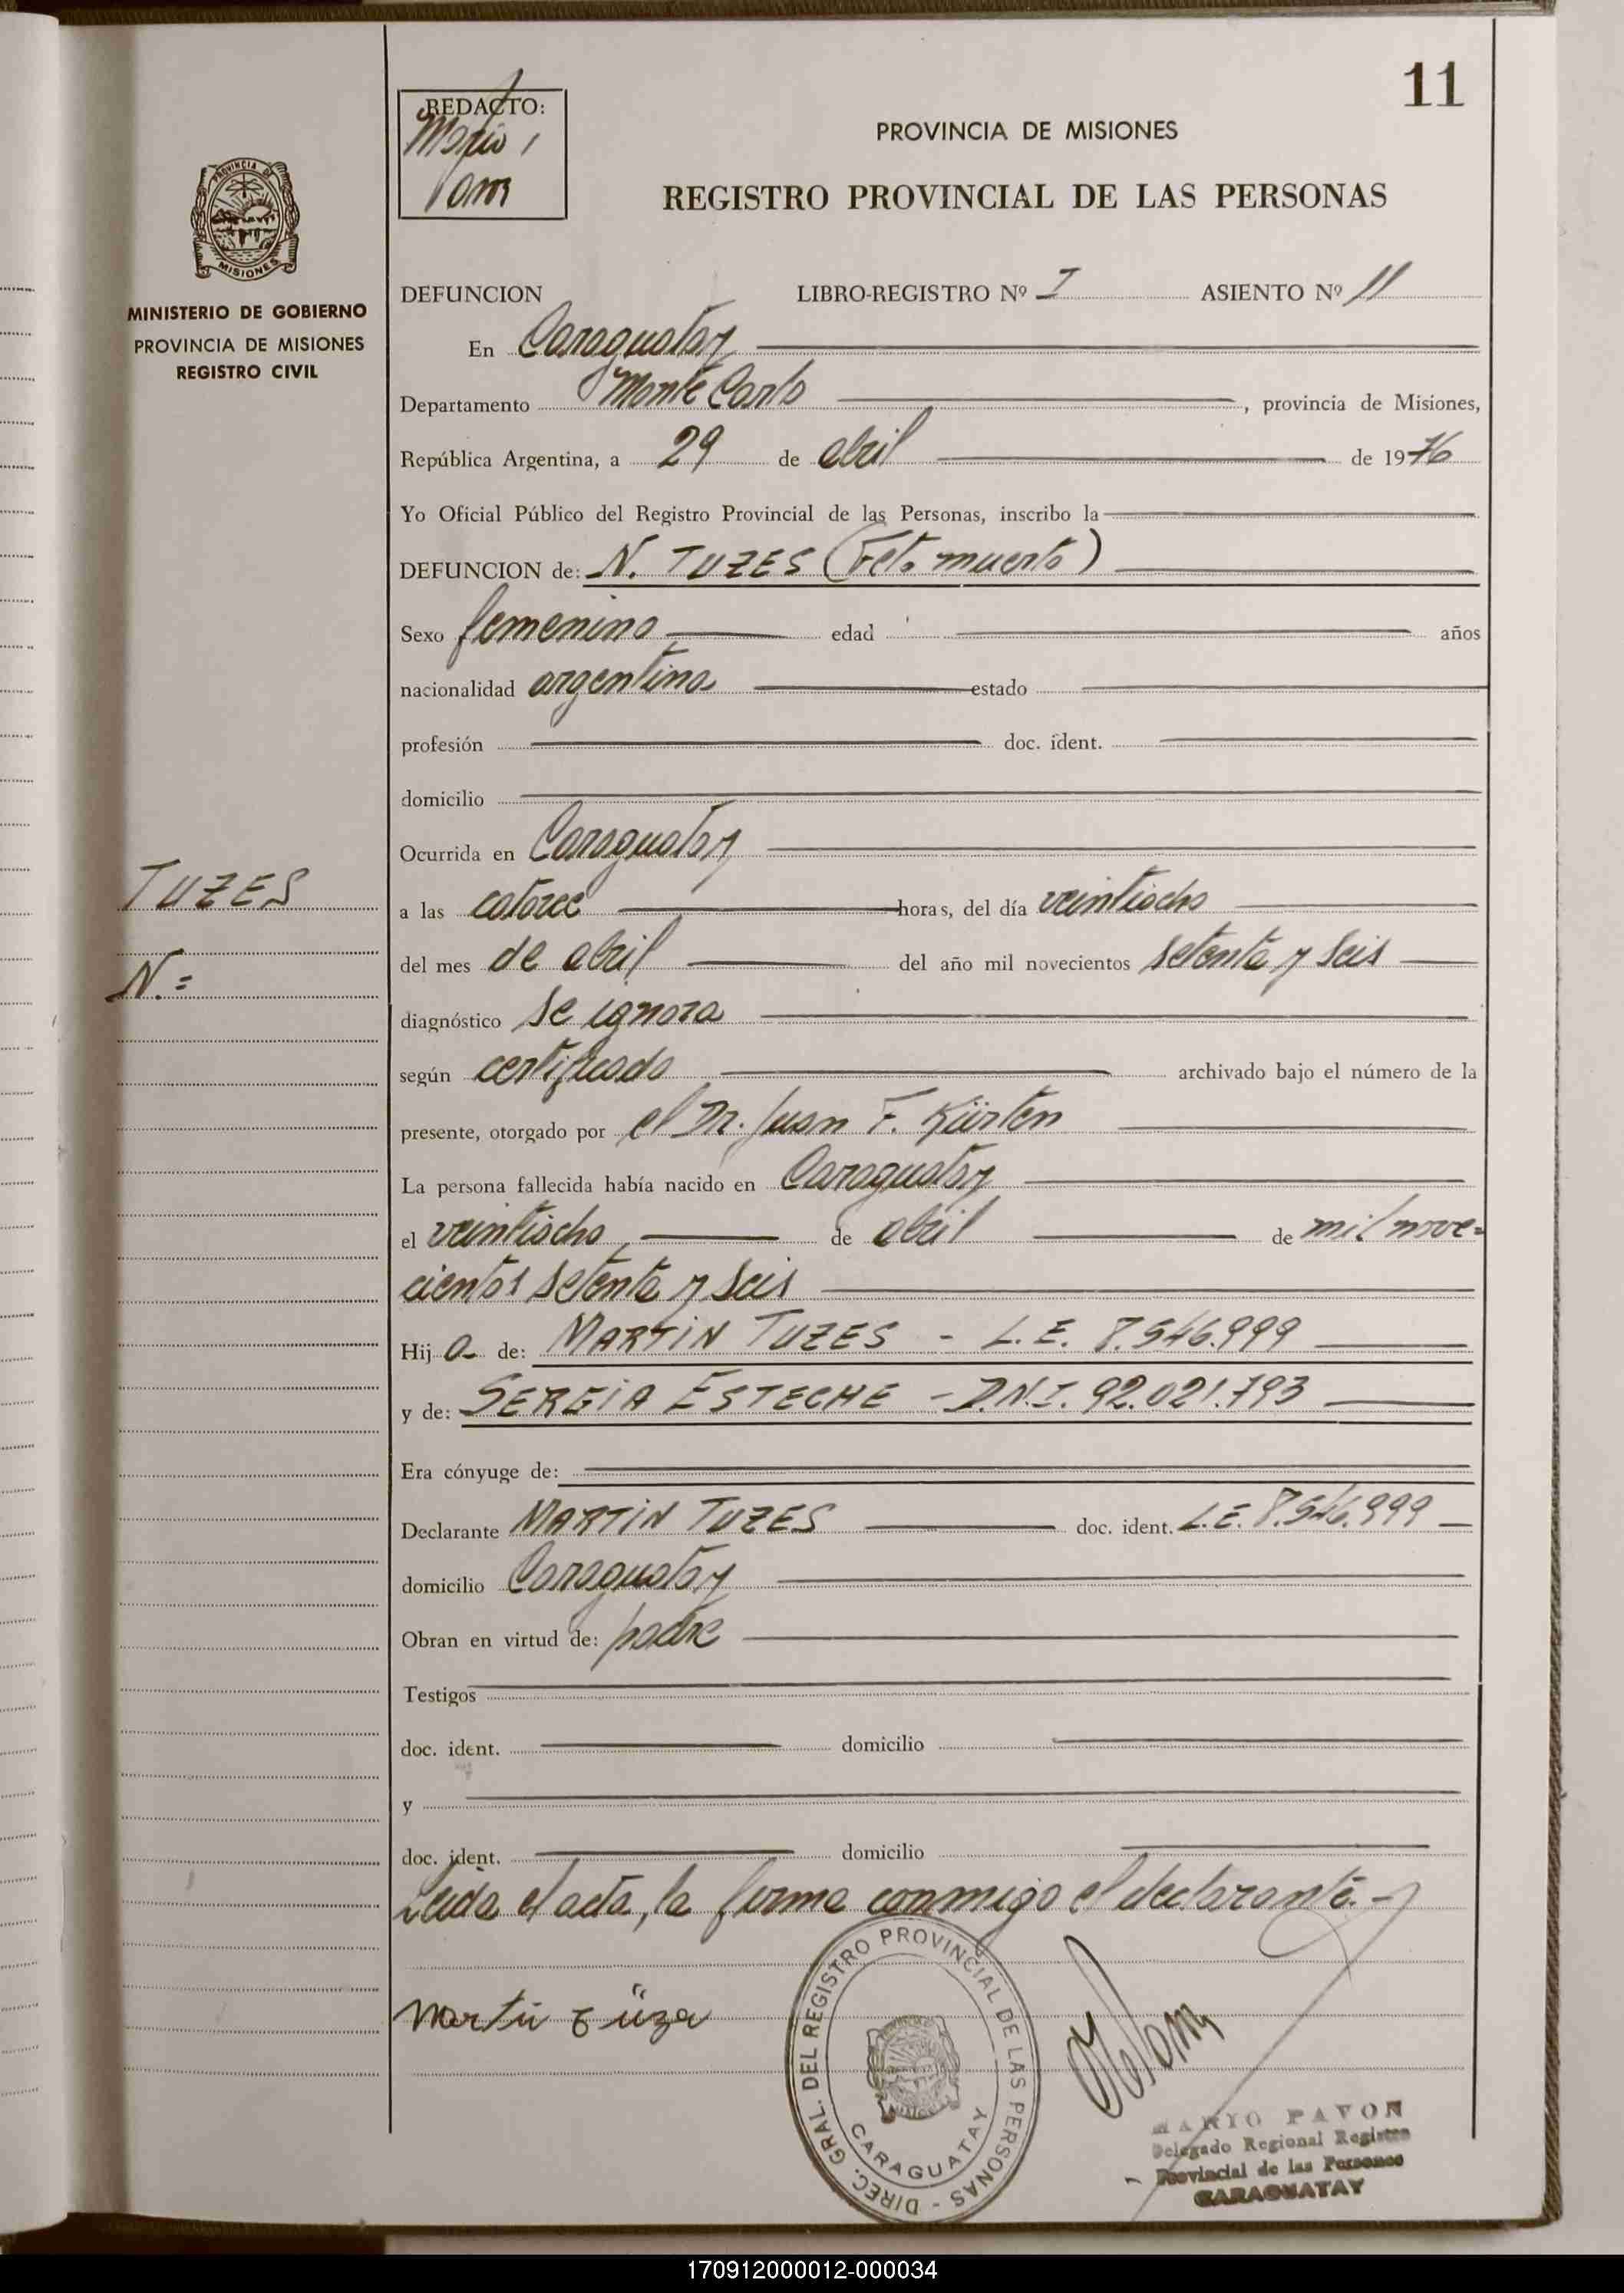 11
REDACTO:
PROVINCIA DE MISIONES
REGISTRO PROVINCIAL DE LAS PERSONAS
PROVINCIA DE
MISIONES
MINISTERIO DE GOBIERNO
PROVINCIA DE MISIONES
REGISTRO CIVIL
DEFUNCION LIBRO-REGISTRO Nº I ASIENTO Nº 11
En Caraguatay
Departamento Monte Carlo, provincia de Misiones,
República Argentina, a 29 de abril de 1976
Yo Oficial Público del Registro Provincial de las Personas, inscribo la
DEFUNCION de: N. TUZES (Feto muerto)
Sexo femenino edad años
nacionalidad argentina estado
profesión doc. ident.
domicilio
Ocurrida en Caraguatay
TUZES
N.=
a las catorce horas, del día veintiocho
del mes de abril del año mil novecientos setenta y seis
diagnóstico se ignora
según certificado archivado bajo el número de la
presente, otorgado por el Dr. Juan F. Kürten
La persona fallecida había nacido en Caraguatay
el veintiocho de abril de mil nove=
cientos setenta y seis
Hij a de: MARTIN TUZES - L.E. 8.546.999
y de: SERGIA ESTECHE - D.N.I. 92.021.793
Era cónyuge de:
Declarante MARTIN TUZES doc. ident. L.E. 8.546.999
domicilio Caraguatay
Obran en virtud de: padre
Testigos
doc. ident. domicilio
y
doc. ident. domicilio
Leida el acta, la firma conmigo el declarante.-
DIREC. GRAL. DEL REGISTRO PROVINCIAL DE LAS PERSONAS -
CARAGUATAY
MARYO PAVON
Delegado Regional Registro
Provincial de las Personas
CARAGUATAY
170912000012-000034